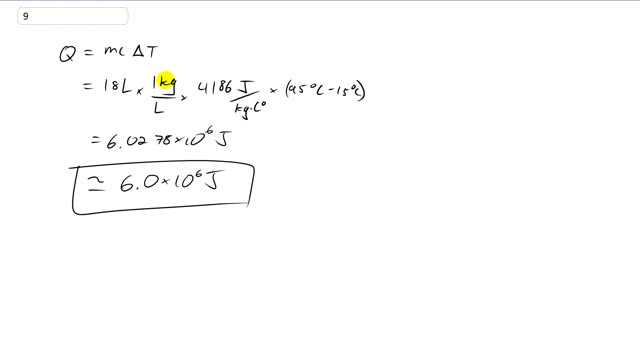 9
Q = mc ΔT
= 18L × 1kg/L × 4186 J/kg·C° × (95°C - 15°C)
= 6.0278×10⁶ J
≃ 6.0×10⁶ J